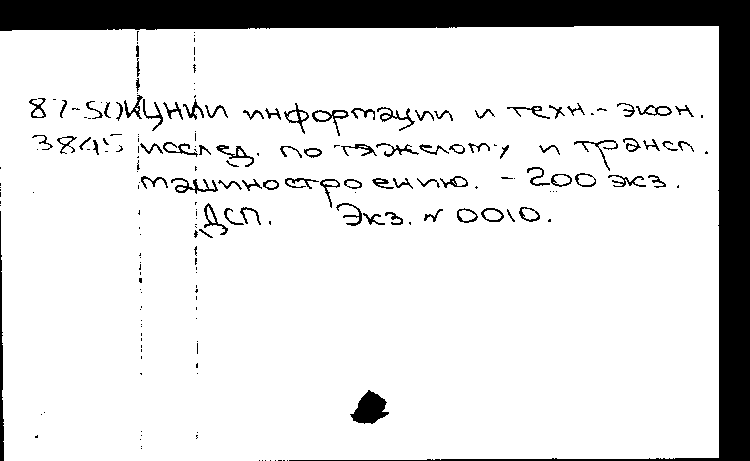 87-50к ЦНИИ информации и техн.-экон.
3845 исслед. по тяжелому и трансп.
машиностроению. - 200 экз.
ДСП. Экз. N 0010.